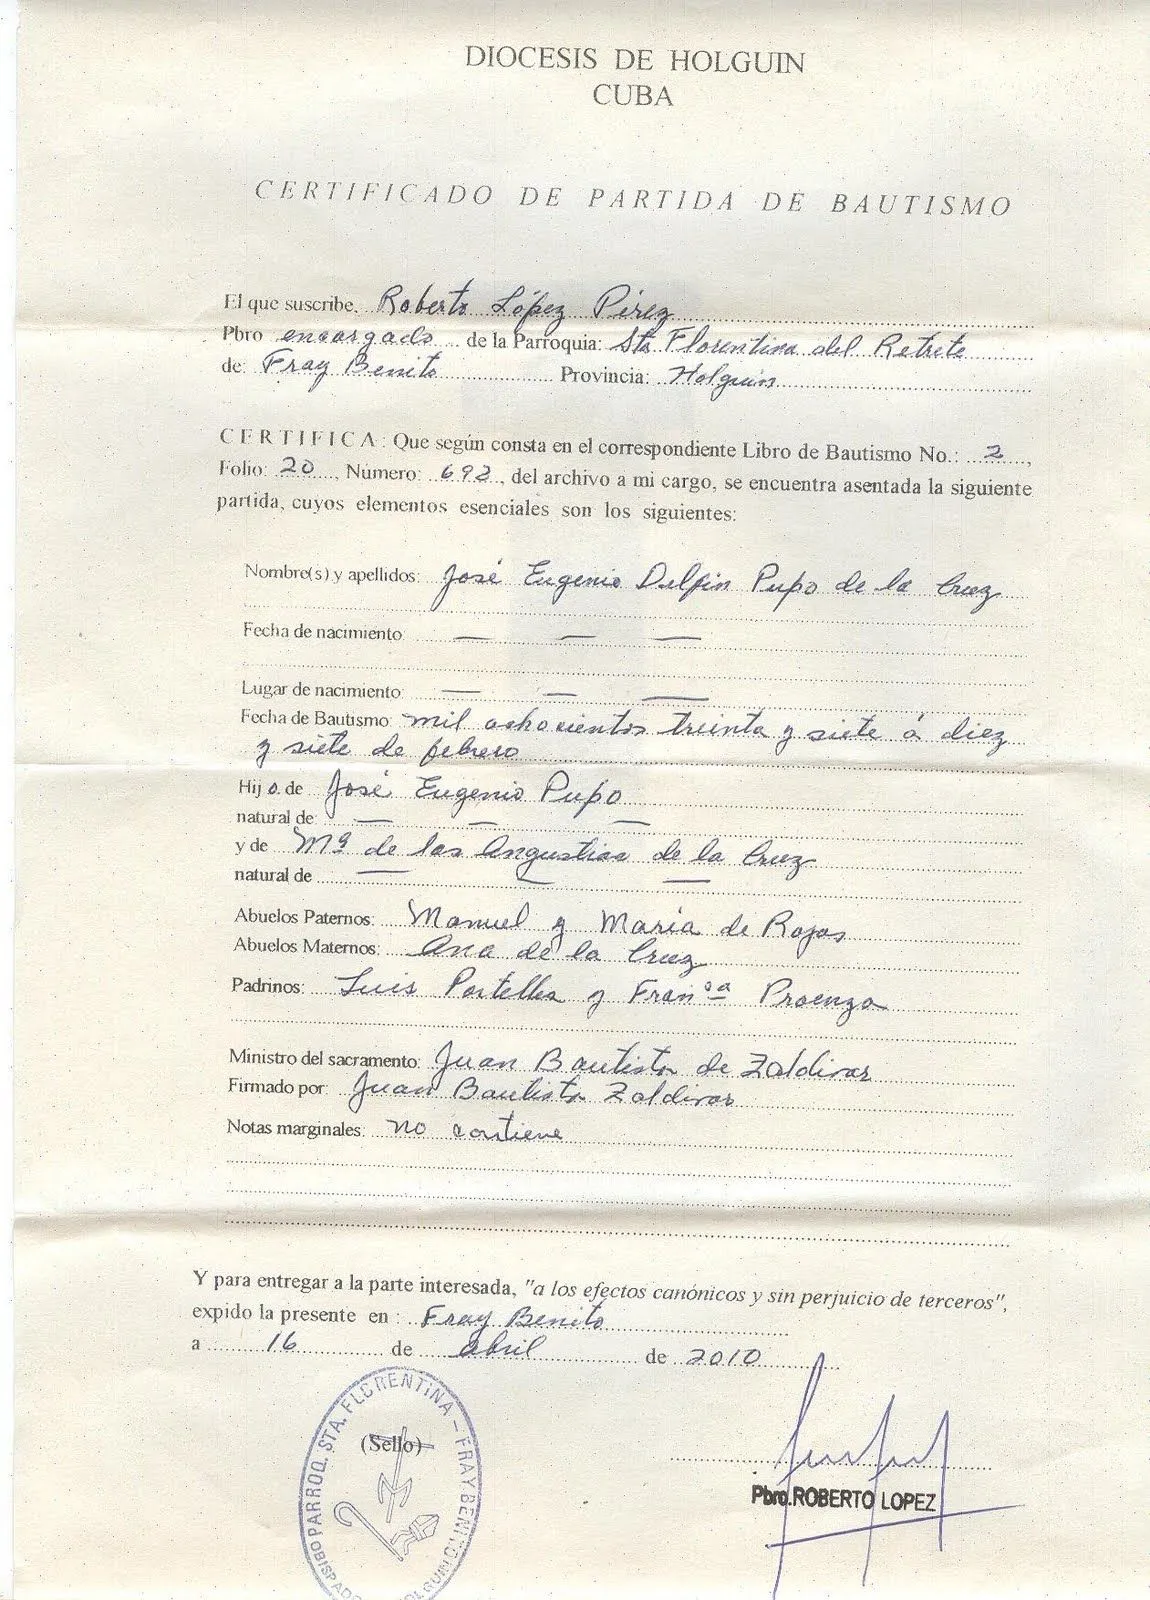 DIOCESIS DE HOLGUIN
CUBA
CERTIFICADO DE PARTIDA DE BAUTISMO
El que suscribe, Roberto López Pérez
Pbro encargado de la Parroquia: Sta Florentina del Retrete
de: Fray Benito Provincia: Holguín
CERTIFICA: Que según consta en el correspondiente Libro de Bautismo No.: 2,
Folio: 20, Número: 692, del archivo a mi cargo, se encuentra asentada la siguiente
partida, cuyos elementos esenciales son los siguientes:
Nombre(s) y apellidos: José Eugenio Delfin Pupo de la Cruz
Fecha de nacimiento: — — —
Lugar de nacimiento: — — —
Fecha de Bautismo: mil ochocientos treinta y siete á diez
y siete de febrero
Hijo de José Eugenio Pupo
natural de: — — —
y de Mª de las Angustias de la Cruz
natural de — — —
Abuelos Paternos: Manuel y María de Rojas
Abuelos Maternos: Ana de la Cruz
Padrinos: Luis Portelles y Franᶜᵃ Proenza
Ministro del sacramento: Juan Bautista de Zaldivar
Firmado por: Juan Bautista Zaldivar
Notas marginales: no contiene
Y para entregar a la parte interesada, "a los efectos canónicos y sin perjuicio de terceros",
expido la presente en : Fray Benito
a 16 de abril de 2010
(Sello)
PARROQ. STA. FLORENTINA - FRAY BENITO
OBISPADO HOLGUIN
Pbro. ROBERTO LOPEZ